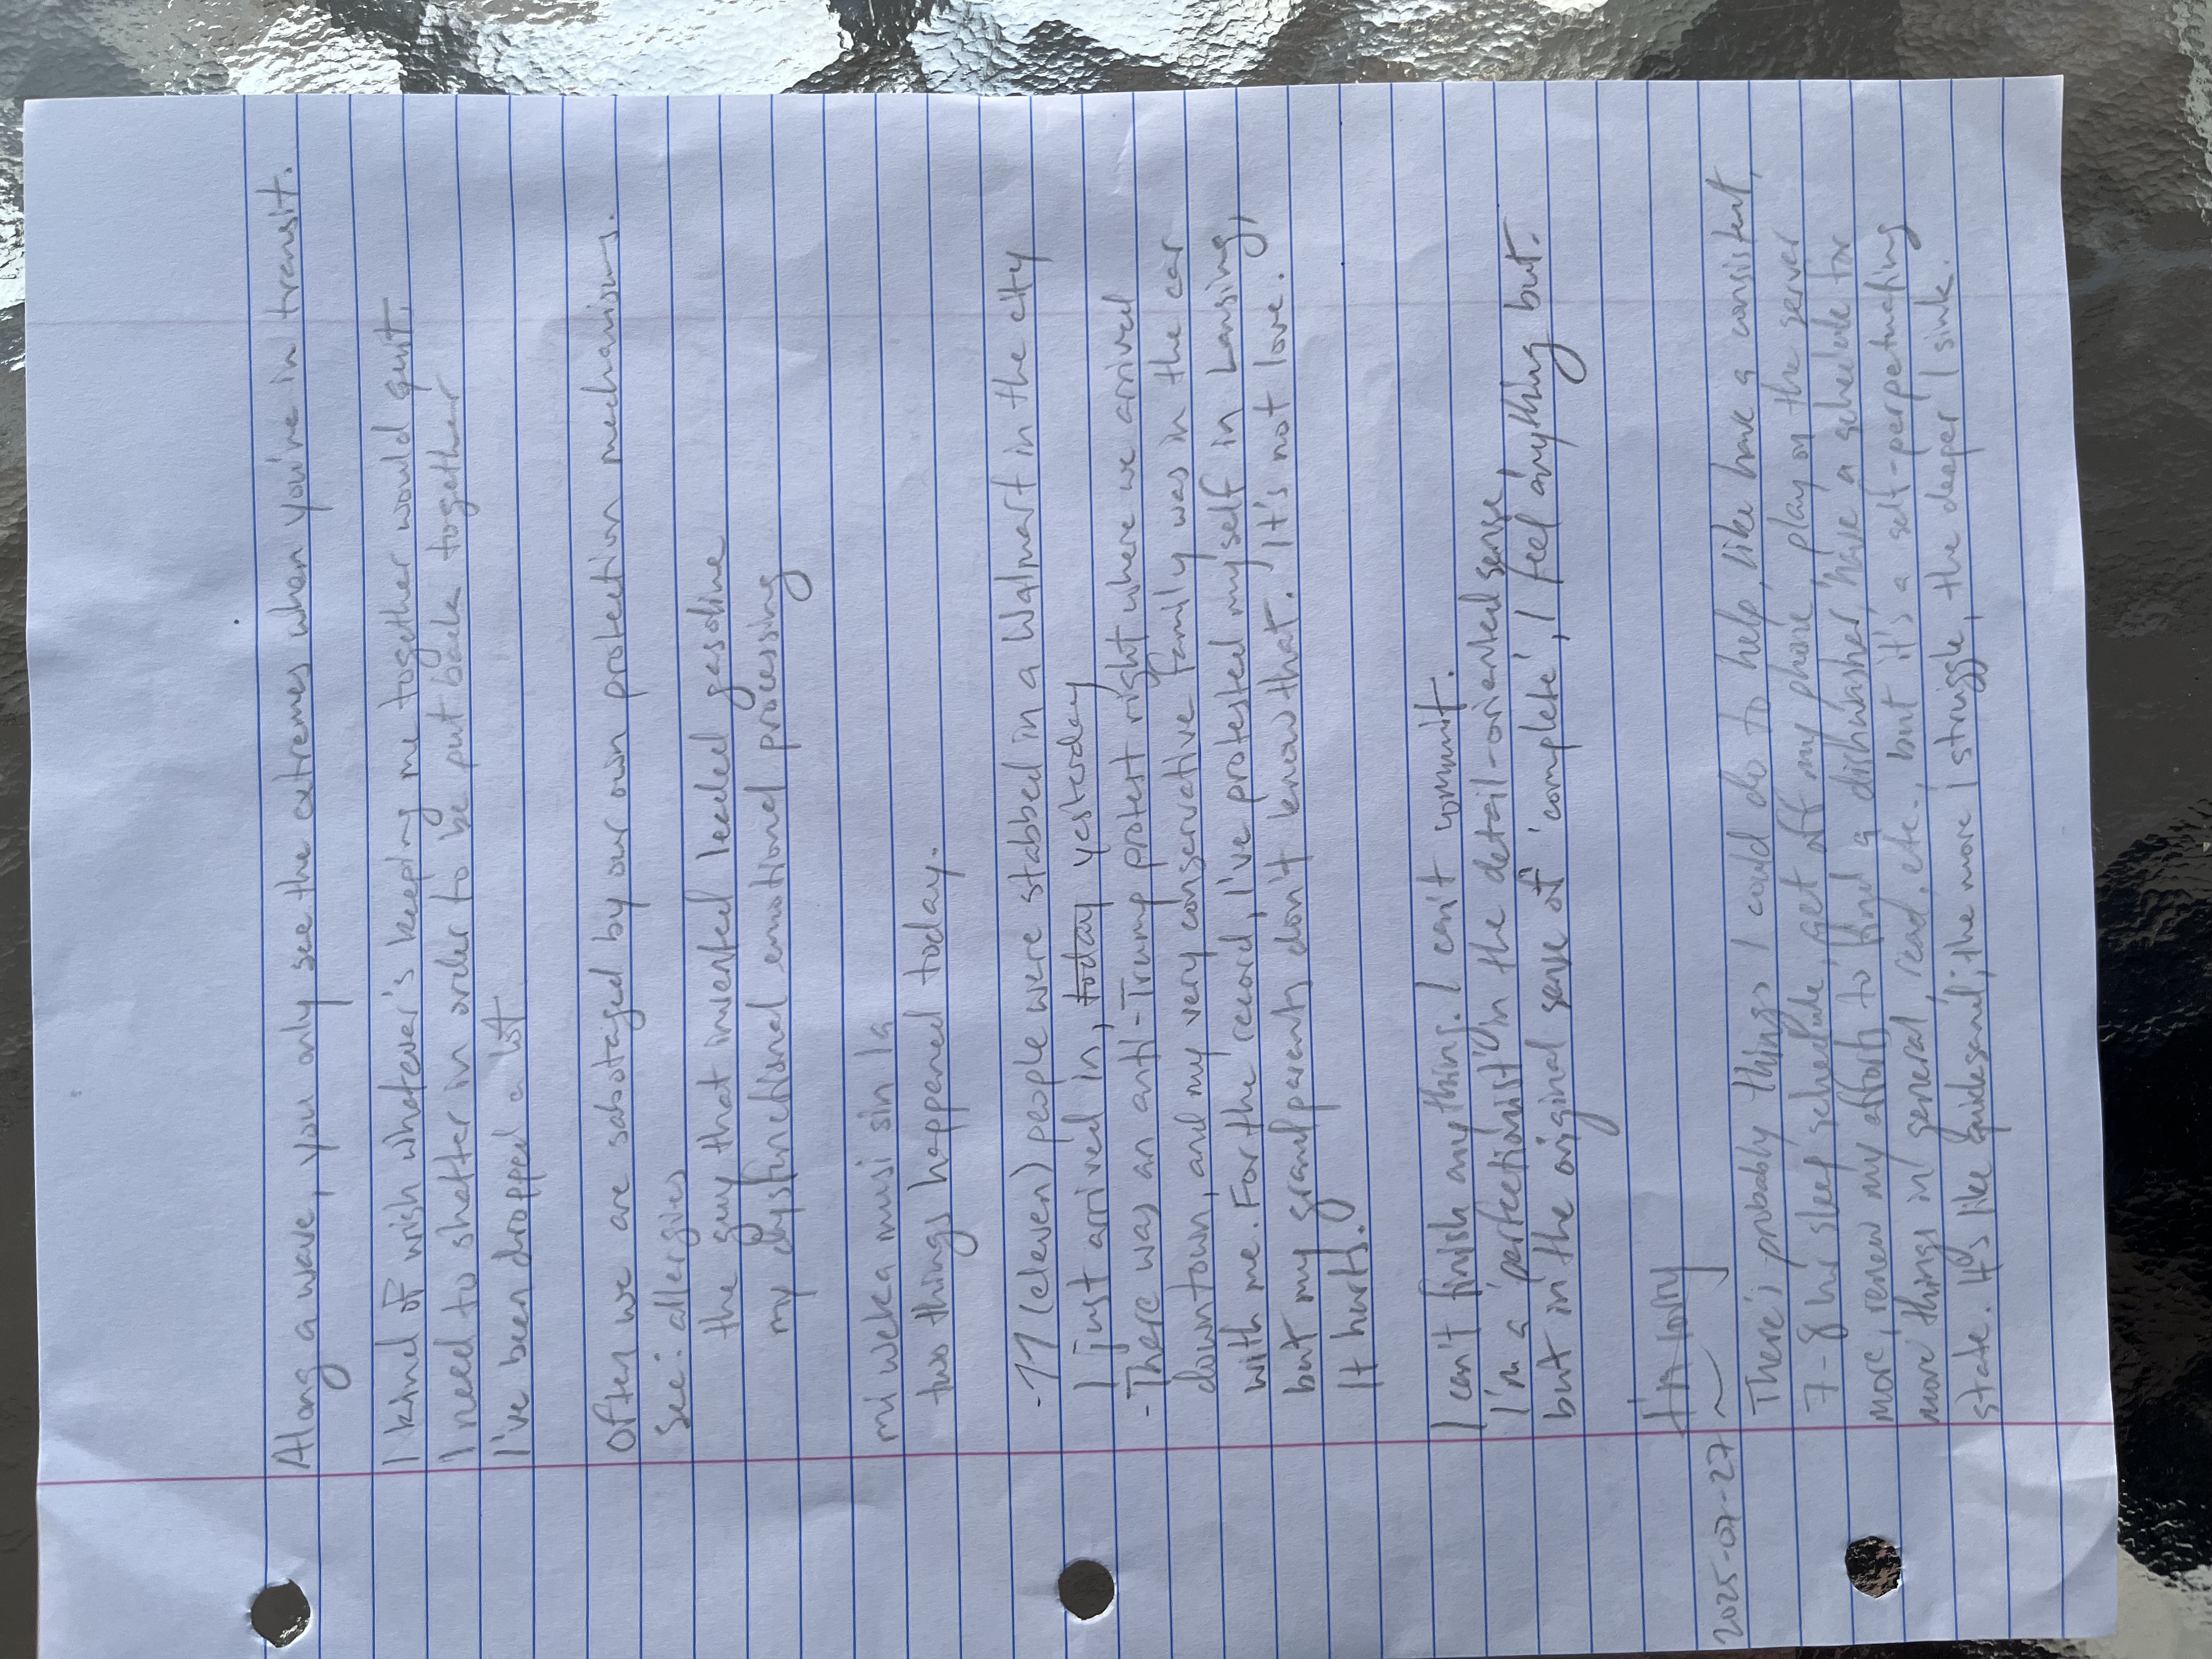 Along a wave, you only see the extremes when you're in transit.
I kind of wish whatever's keeping me together would quit.
I need to shatter in order to be put back together
I've been dropped a lot
Often we are sabotaged by our own protection mechanisms.
See: allergies
the guy that invented leaded gasoline
my dysfunctional emotional processing
mi weka musi sin la
two things happened today.
-11 (eleven) people were stabbed in a Walmart in the city
I just arrived in, today yesterday
-There was an anti-Trump protest right where we arrived
downtown, and my very conservative family was in the car
with me. For the record, I've protested myself in Lansing,
but my grandparents don't know that. It's not love.
It hurts.
I can't finish anything. I can't commit.
I'm a 'perfectionist' in the detail-oriented sense,
but in the original sense of 'complete', I feel anything but.
2025-07-27 ~
There's probably things I could do to help, like have a consistent,
7-8 hr sleep schedule, get off my phone, play on the server
more, renew my efforts to find a dishwasher, have a schedule for
more things in general, read, etc., but it's a self-perpetuating
state. It's like quicksand; the more I struggle, the deeper I sink.